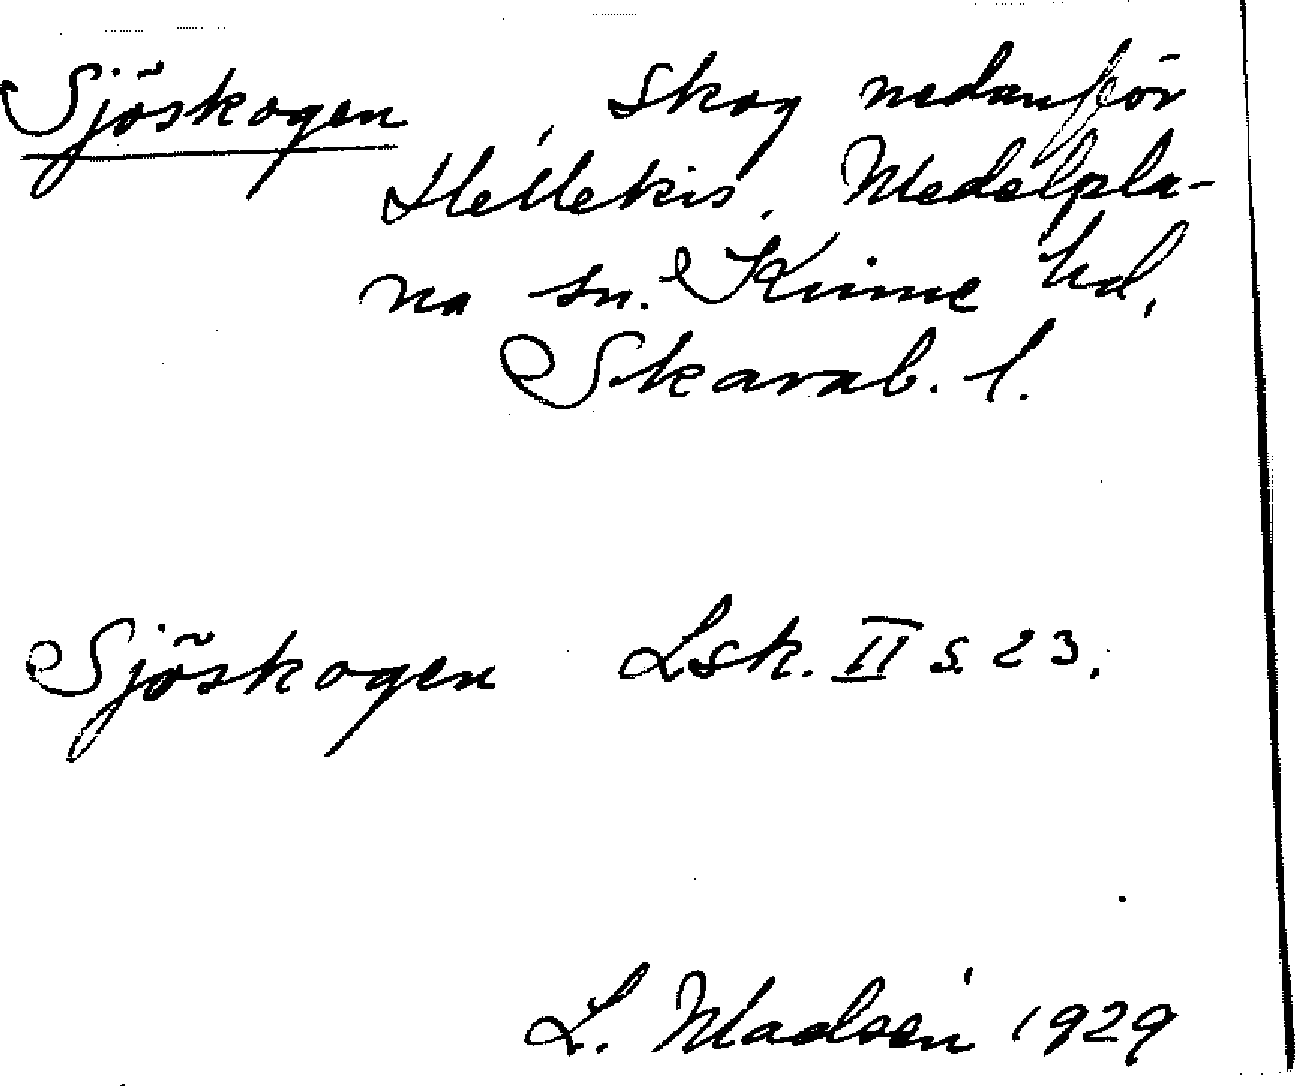 Sjöskogen, skog nedanför
Hellekis, Medelpla-
na sn. Kinne hd,
Skarab. l.
Sjöskogen Lsk. II s. 23.
L. Madsén 1929